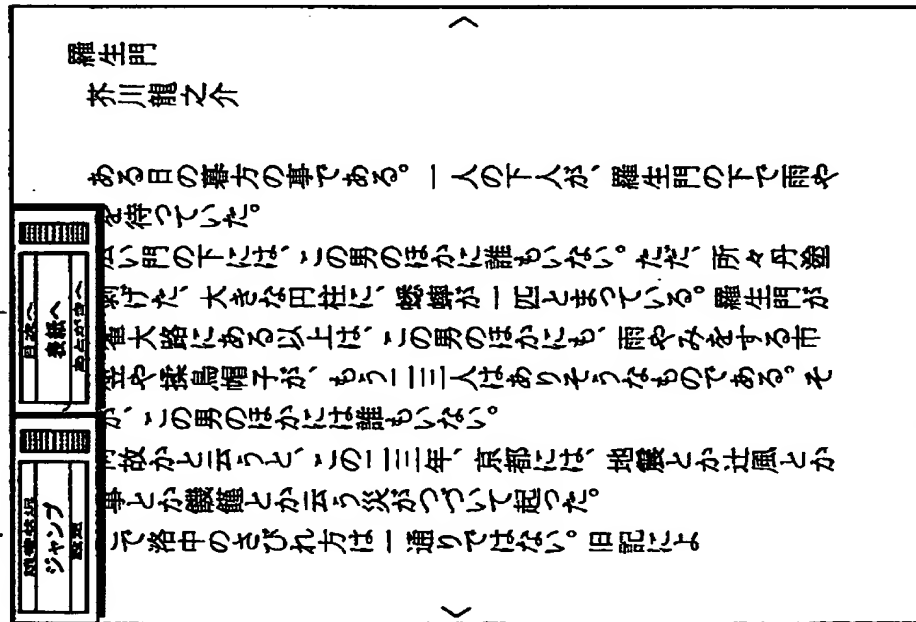 羅生門
芥川龍之介
ある日の暮方の事である。一人の下人が、羅生門の下で雨や
を待っていた。
広い門の下には、この男のほかに誰もいない。ただ、所々丹塗
剥げた、大きな円柱に、蟋蟀が一匹とまっている。羅生門が
雀大路にある以上は、この男のほかにも、雨やみをする市
笠や揉烏帽子が、もう二三人はありそうなものである。そ
が、この男のほかには誰もいない。
何故かと云うと、この二三年、京都には、地震とか辻風とか
事とか饑饉とか云う災がつづいて起った。
って洛中のさびれ方は一通りではない。旧記によ
目次へ
表紙へ
あとがきへ
読書状況
ジャンプ
設定